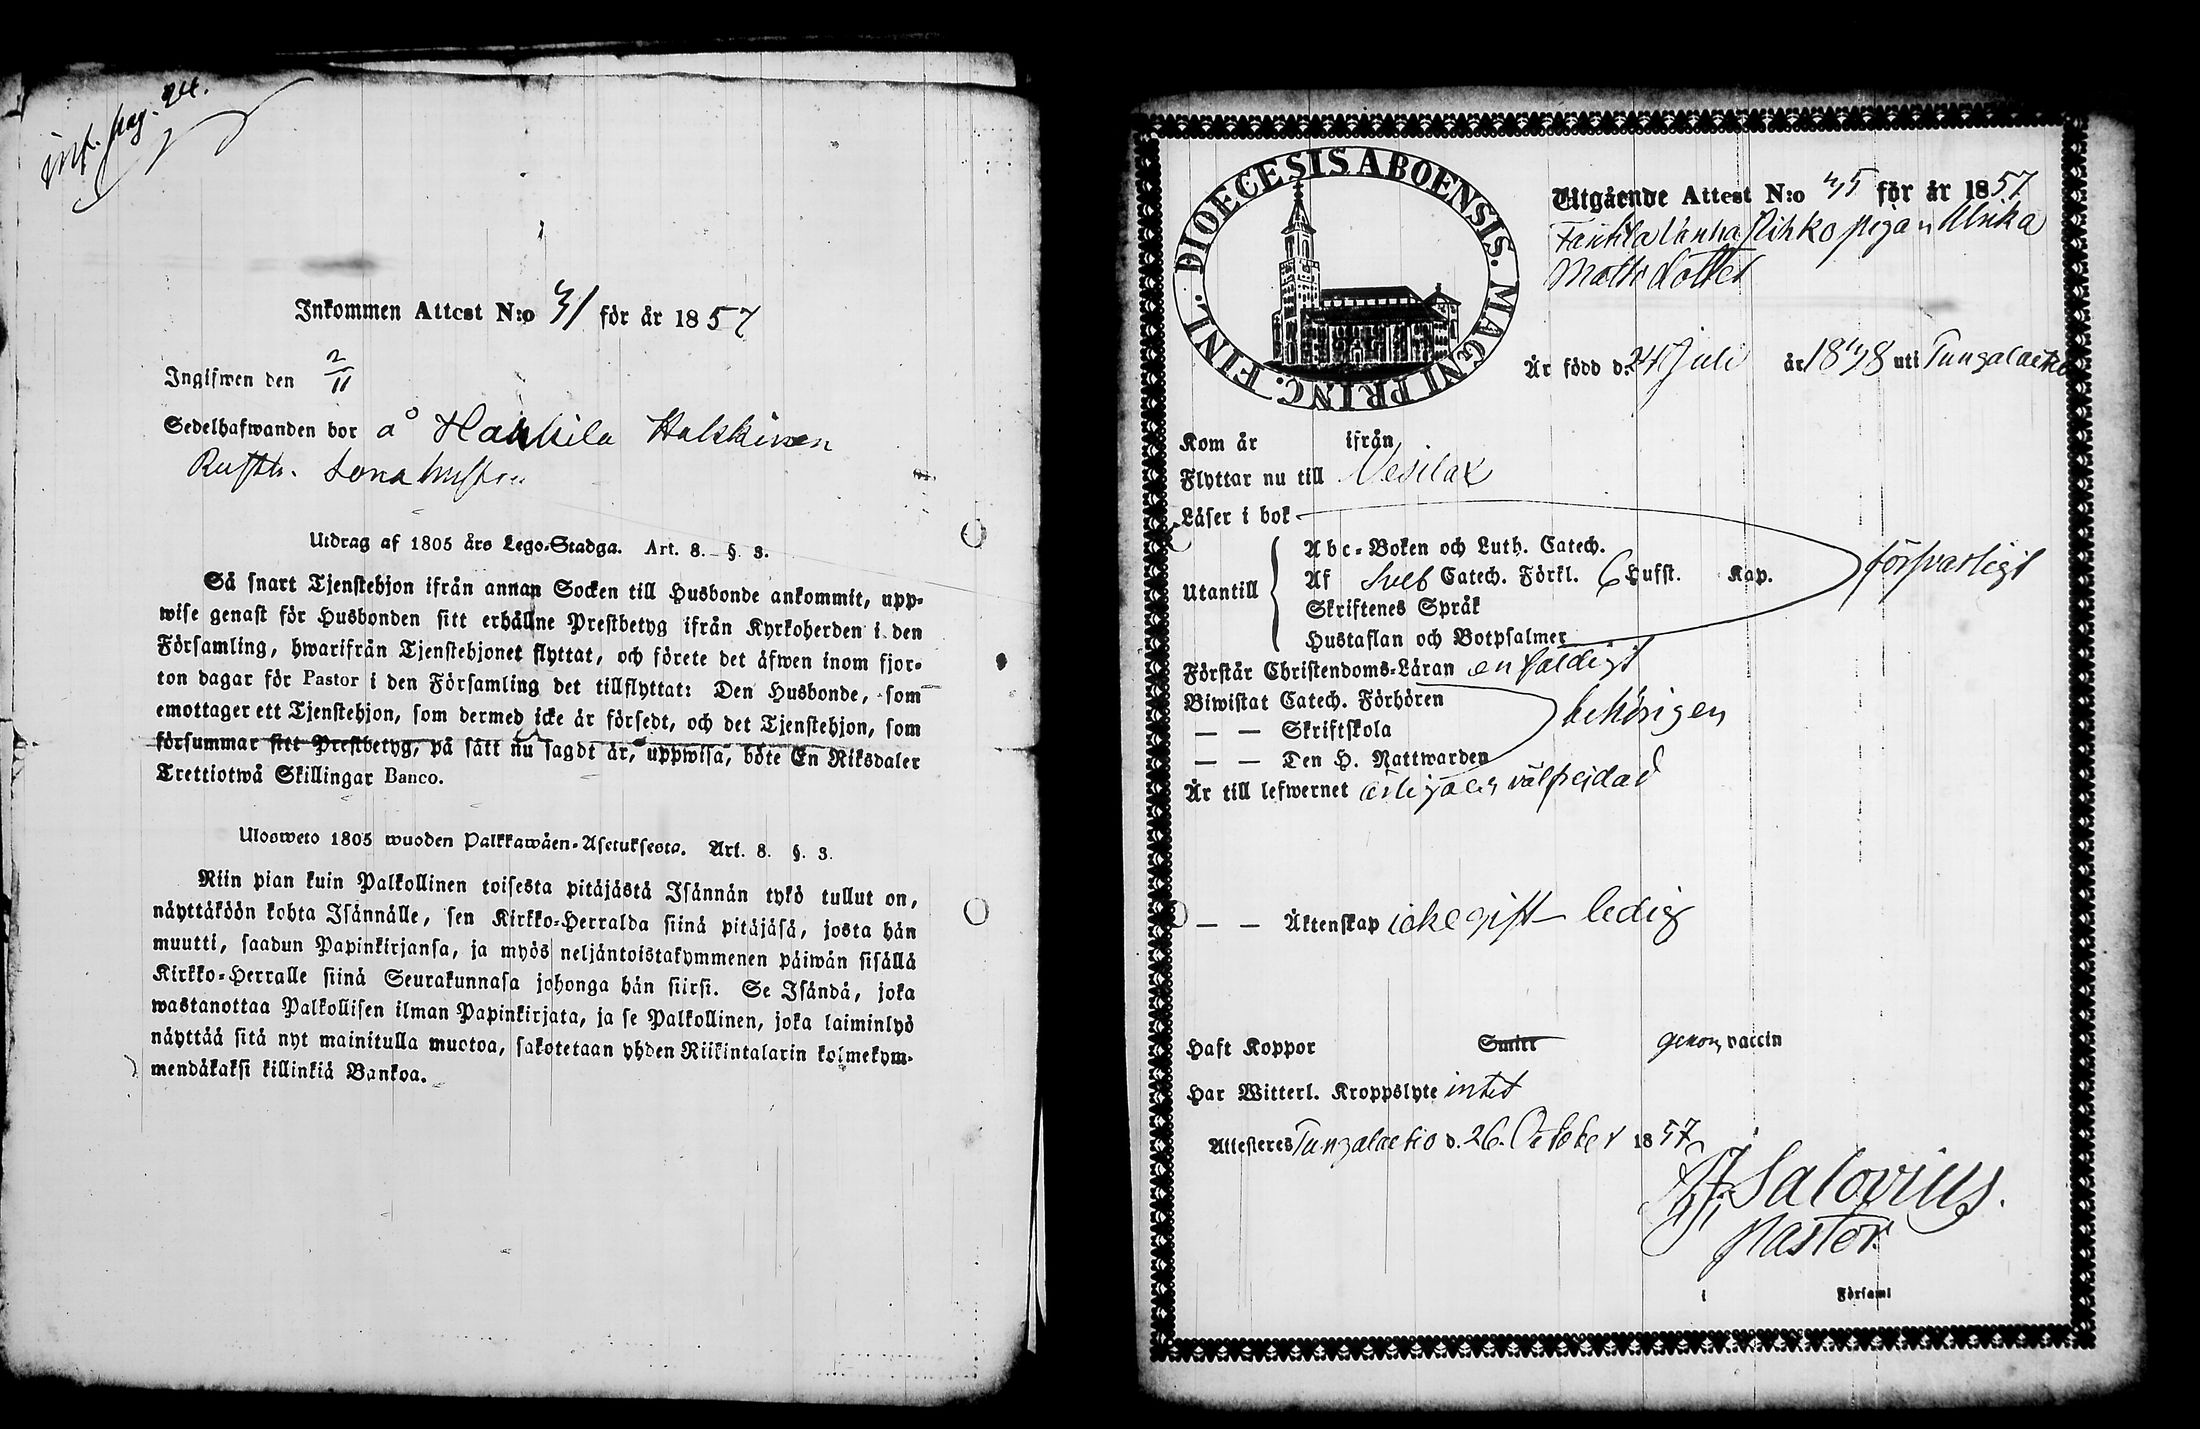 inf. pag. 24.
Inkommen Attest N:o 31 för år 1857
Ingifwen den 2/11
Sedelhafwanden bor å Hakkila Halkkinen
Rusth. Sona hustru
Utdrag af 1805 års Lego-Stadga. Art. 8. §. 3.
Så snart Tjenstehjon ifrån annan Socken till Husbonde ankommit, upp-
wise genast för Husbonden sitt erhållne Prestbetyg ifrån Kyrkoherden i den
Församling, hwarifrån Tjenstehjonet flyttat, och förete det äfwen inom fjor-
ton dagar för Pastor i den Församling det tillflyttat: Den Husbonde, som
emottager ett Tjenstehjon, som dermed icke är försedt, och det Tjenstehjon, som
försummar sitt Prestbetyg, på sätt nu sagdt är, uppwisa, böte En Riksdaler
Trettiotwå Skillingar Banco.
Ulosweto 1805 wuoden Palkkawäen-Asetuksesta. Art. 8. §. 3.
Niin pian kuin Palkollinen toisesta pitäjästä Isännän tykö tullut on,
näyttäköön kohta Isännälle, sen Kirkko-Herralda siinä pitäjäsä, josta hän
muutti, saadun Papinkirjansa, ja myös neljäntoistakymmenen päiwän sisällä
Kirkko-Herralle siinä Seurakunnasa johonga hän siirsi. Se Isändä, joka
wastanottaa Palkollisen ilman Papinkirjata, ja se Palkollinen, joka laiminlyö
näyttää sitä nyt mainitulla muotoa, sakotetaan yhden Riikintalarin kolmekym-
mendäkaksi killinkiä Bankoa.
DIOECESIS ABOENSIS. MAGNI PRINC. FINL.
Utgående Attest N:o 35 för år 1857
Pihko pigan Ulrika
Matts dotter
Är född d. 24 Juli år 1838 uti Tungalaetio
Kom år ifrån
Flyttar nu till Vesilax
Läser i bok
Utantill
Abc-Boken och Luth. Catech.
Af Sveb Catech. Förkl. 6 Hufst. Kap.
försvarligt
Skriftenes Språk
Hustaflan och Botpsalmer
Förstår Christendoms-Läran enfaldigt
Biwistat Catech. Förhören
— — Skriftskola
behörigen
— — Den H. Nattwarden
Är till lefwernet ärlig och välfrejdad
— — Äktenskap icke gift ledig
Haft Koppor Smitt genom vaccin
Har Witterl. Kroppslyte intet
Attesteres Tungalaetio d. 26 October 1857
Salovius.
Pastor
i Församl